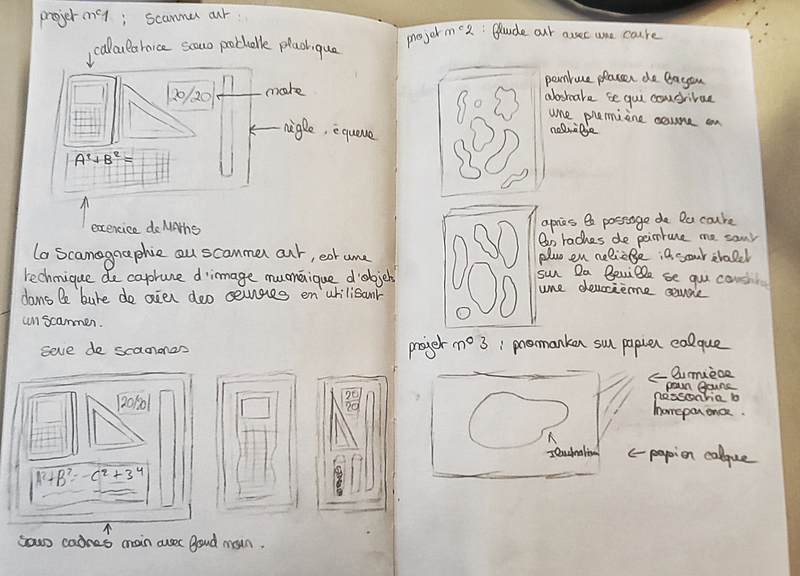 projet n°1 : scanner art :
calculatrice sous pochette plastique
20/20
note
règle, équerre
A²+B²=
exercice de MAths
La Scanographie ou scanner art, est une
technique de capture d'image numérique d'objets
dans le bute de créer des œuvres en utilisant
un scanner.
serie de scanners
20/20
20
20
A²+B²=-C²+3⁴
sous cadres noir avec fond noir.
projet n°2 : fluide art avec une carte
peinture placer de façon
abstraite se qui constitue
une première œuvre en
relièfe
après le passage de la carte
les taches de peinture ne sont
plus en relièfe ils sont étalet
sur la feuille se qui constitue
une deuxième œuvre
projet n°3 : promarker sur papier calque
← lumière
pour faire
ressortir la
transparence.
Illustration
← papier calque